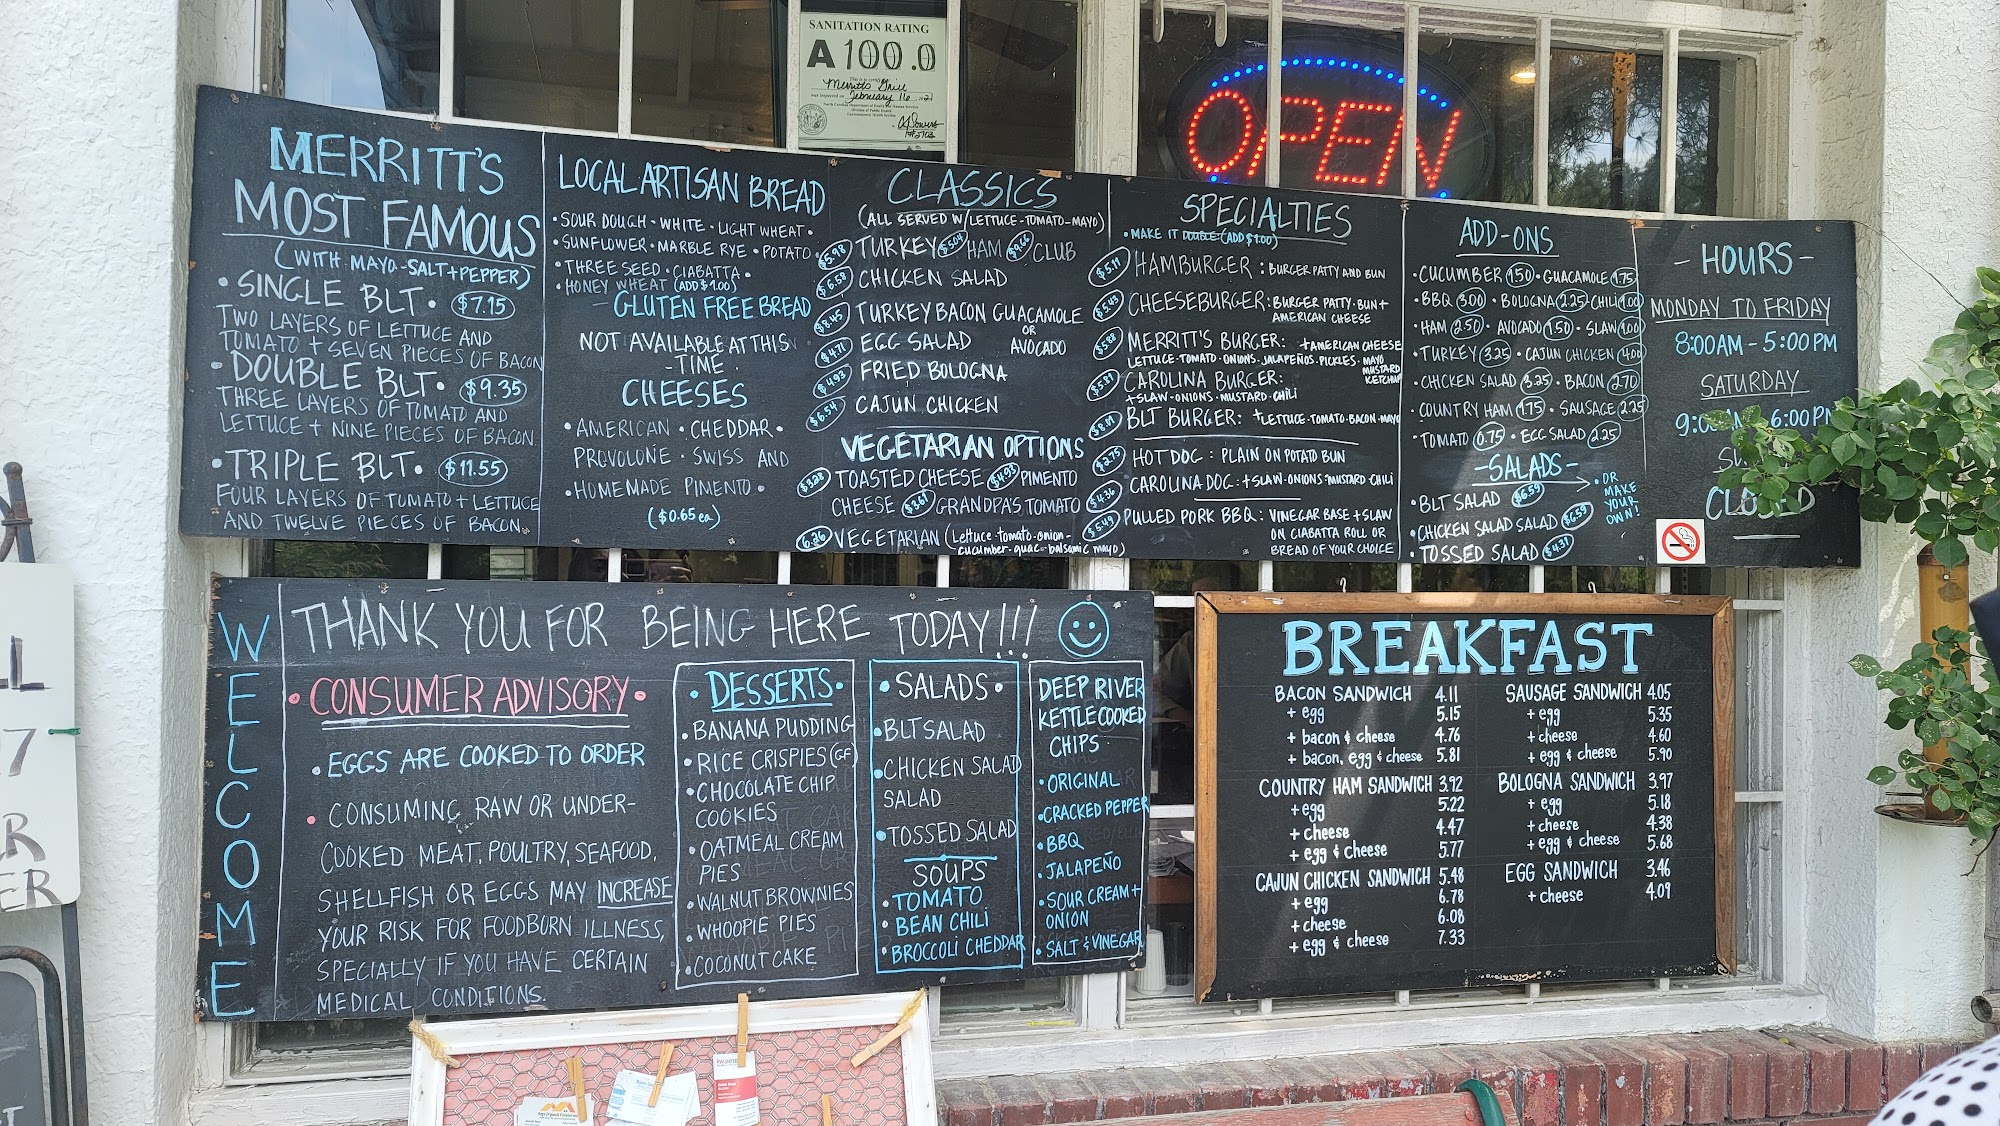 SANITATION RATING
A 100.0
Merritts Grill
February 16
OPEN
MERRITT'S
MOST FAMOUS
(WITH MAYO-SALT+PEPPER)
• SINGLE BLT • $7.15
TWO LAYERS OF LETTUCE AND
TOMATO + SEVEN PIECES OF BACON
• DOUBLE BLT • $9.35
THREE LAYERS OF TOMATO AND
LETTUCE + NINE PIECES OF BACON
• TRIPLE BLT • $11.55
FOUR LAYERS OF TOMATO + LETTUCE
AND TWELVE PIECES OF BACON
LOCAL ARTISAN BREAD
• SOUR DOUGH • WHITE • LIGHT WHEAT •
• SUNFLOWER • MARBLE RYE • POTATO
• THREE SEED • CIABATTA •
• HONEY WHEAT (ADD $1.00)
- GLUTEN FREE BREAD
NOT AVAILABLE AT THIS
- TIME -
CHEESES
• AMERICAN • CHEDDAR •
PROVOLONE • SWISS AND
• HOMEMADE PIMENTO •
($0.65 ea)
CLASSICS
(ALL SERVED W/LETTUCE-TOMATO-MAYO)
$5.98 TURKEY $5.04 HAM $9.66 CLUB
$6.58 CHICKEN SALAD
$8.45 TURKEY BACON GUACAMOLE
OR
AVOCADO
$4.71 EGG SALAD
$4.93 FRIED BOLOGNA
$6.54 CAJUN CHICKEN
VEGETARIAN OPTIONS
$3.28 TOASTED CHEESE $4.93 PIMENTO
CHEESE $3.61 GRANDPA'S TOMATO
6.26 VEGETARIAN (Lettuce-tomato-onion-
cucumber-guac-balsamic mayo)
SPECIALTIES
• MAKE IT DOUBLE (ADD $1.00)
$5.11 HAMBURGER : BURGER PATTY AND BUN
$5.43 CHEESEBURGER: BURGER PATTY • BUN +
AMERICAN CHEESE
$5.88 MERRITT'S BURGER: +AMERICAN CHEESE
LETTUCE-TOMATO-ONIONS-JALAPEÑOS-PICKLES- MAYO
MUSTARD
KETCHUP
$5.81 CAROLINA BURGER:
+SLAW-ONIONS-MUSTARD-CHILI
$8.11 BLT BURGER: +LETTUCE-TOMATO-BACON-MAYO
$2.75 HOT DOG : PLAIN ON POTATO BUN
$4.36 CAROLINA DOG: +SLAW-ONIONS-MUSTARD-CHILI
$5.49 PULLED PORK BBQ: VINEGAR BASE +SLAW
ON CIABATTA ROLL OR
BREAD OF YOUR CHOICE
ADD-ONS
• CUCUMBER 1.50 • GUACAMOLE 1.75
• BBQ 3.00 • BOLOGNA 2.25 • CHILI 1.00
• HAM 2.50 • AVOCADO 1.50 • SLAW 1.00
• TURKEY 3.25 • CAJUN CHICKEN 4.00
• CHICKEN SALAD 3.25 • BACON 2.70
• COUNTRY HAM 1.75 • SAUSAGE 2.25
• TOMATO 0.75 • EGG SALAD 2.25
- SALADS -
• BLT SALAD $6.59
• CHICKEN SALAD SALAD $6.59
• TOSSED SALAD $4.31
• OR
MAKE
YOUR
OWN!
- HOURS -
MONDAY TO FRIDAY
8:00AM - 5:00PM
SATURDAY
6:00PM
CLOSED
WELCOME
THANK YOU FOR BEING HERE TODAY!!!
• CONSUMER ADVISORY •
• EGGS ARE COOKED TO ORDER
• CONSUMING RAW OR UNDER-
COOKED MEAT, POULTRY, SEAFOOD,
SHELLFISH OR EGGS MAY INCREASE
YOUR RISK FOR FOODBORN ILLNESS,
SPECIALLY IF YOU HAVE CERTAIN
MEDICAL CONDITIONS.
• DESSERTS •
• BANANA PUDDING
• RICE CRISPIES (GF)
• CHOCOLATE CHIP
COOKIES
• OATMEAL CREAM
PIES
• WALNUT BROWNIES
• WHOOPIE PIES
• COCONUT CAKE
• SALADS •
• BLT SALAD
• CHICKEN SALAD
SALAD
• TOSSED SALAD
SOUPS
• TOMATO
• BEAN CHILI
• BROCCOLI CHEDDAR
DEEP RIVER
KETTLE COOKED
CHIPS •
• ORIGINAL
• CRACKED PEPPER
• BBQ
• JALAPEÑO
• SOUR CREAM +
ONION
• SALT & VINEGAR
BREAKFAST
BACON SANDWICH 4.11
+ egg 5.15
+ bacon & cheese 4.76
+ bacon, egg & cheese 5.81
COUNTRY HAM SANDWICH 3.92
+ egg 5.22
+ cheese 4.47
+ egg & cheese 5.77
CAJUN CHICKEN SANDWICH 5.48
+ egg 6.78
+ cheese 6.08
+ egg & cheese 7.33
SAUSAGE SANDWICH 4.05
+ egg 5.35
+ cheese 4.60
+ egg & cheese 5.90
BOLOGNA SANDWICH 3.97
+ egg 5.18
+ cheese 4.38
+ egg & cheese 5.68
EGG SANDWICH 3.46
+ cheese 4.09